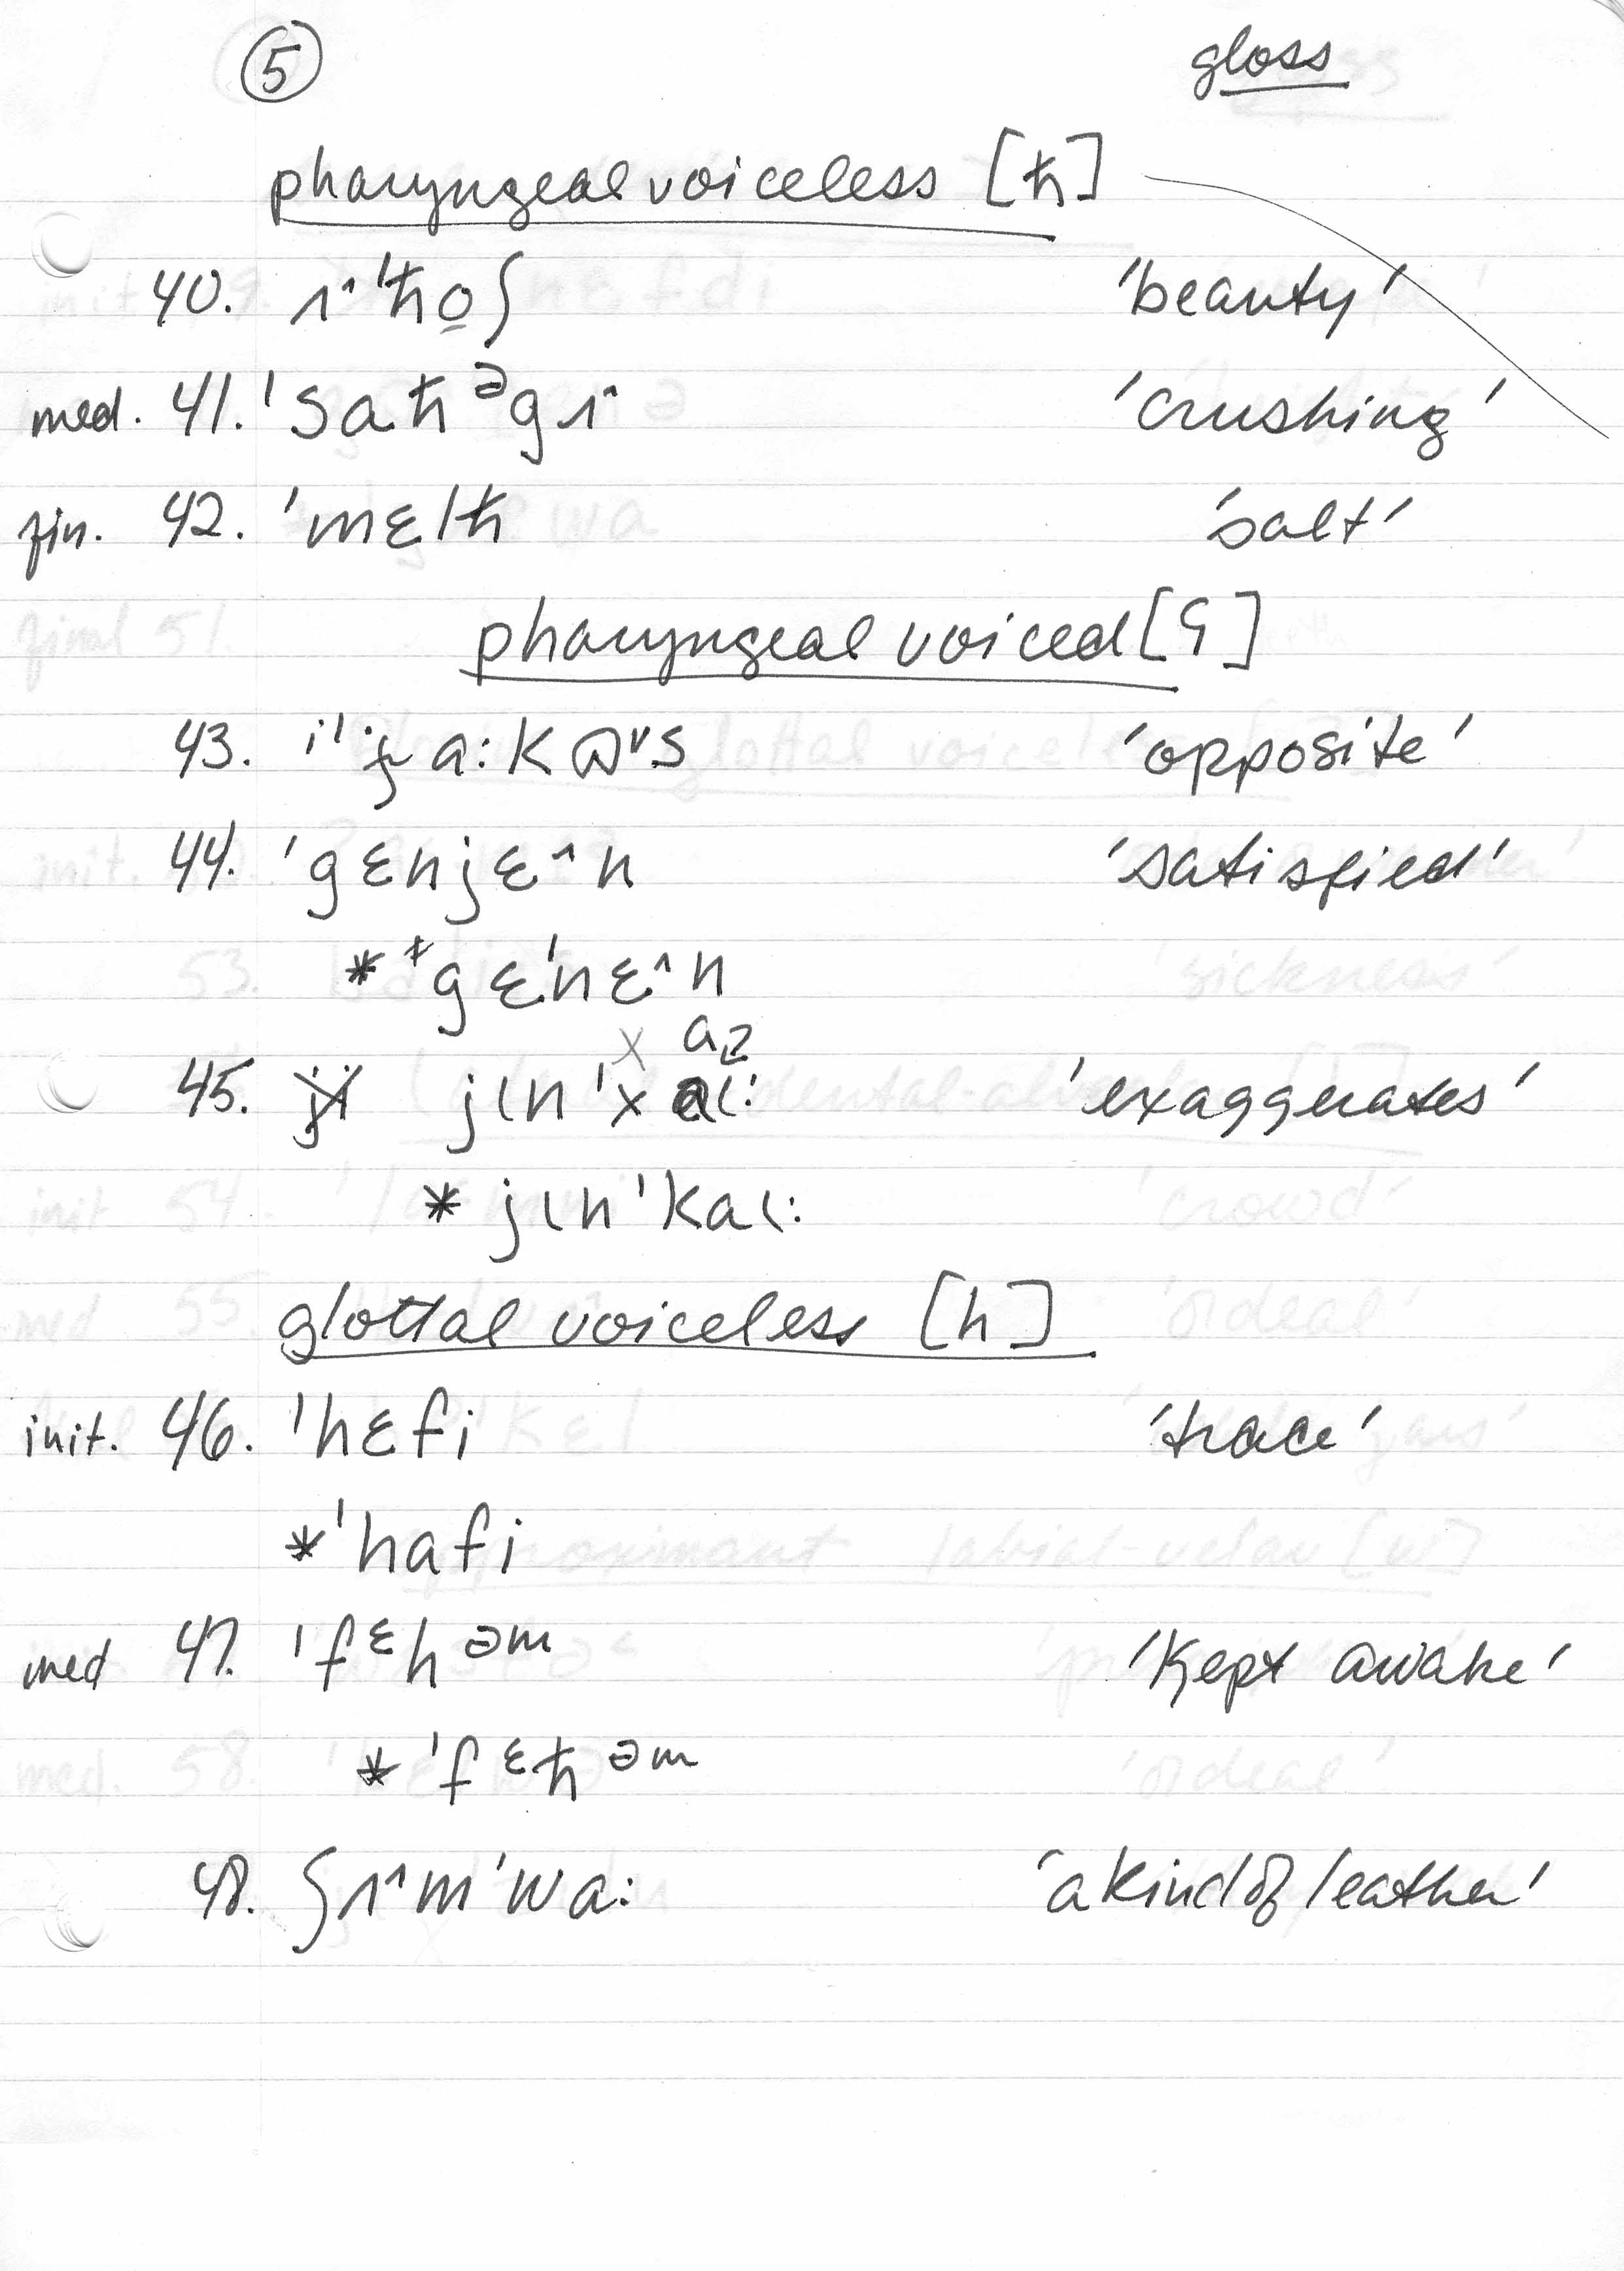 5 gloss
pharyngeal voiceless [ħ]
40. ɪ^ˈħo̱ʃ 'beauty'
med. 41. ˈsaħᵊgɪ^ 'crushing'
fin. 42. ˈmɛlħ 'salt'
pharyngeal voiced [ʕ]
43. 'opposite'
44. ˈgɛnjɛ^n 'satisfied'
* gɛˈnɛ^n
x a
45. jɩnˈx 'exaggerates'
* jɩnˈkaɩ:
glottal voiceless [h]
init. 46. ˈhɛfi 'trace'
*ˈhafi
med 47. ˈfᵋhᵊᵐ 'Kept awake'
*ˈfᵋħᵊᵐ
48. ʃɪ^mˈwa: 'a kind of leather'